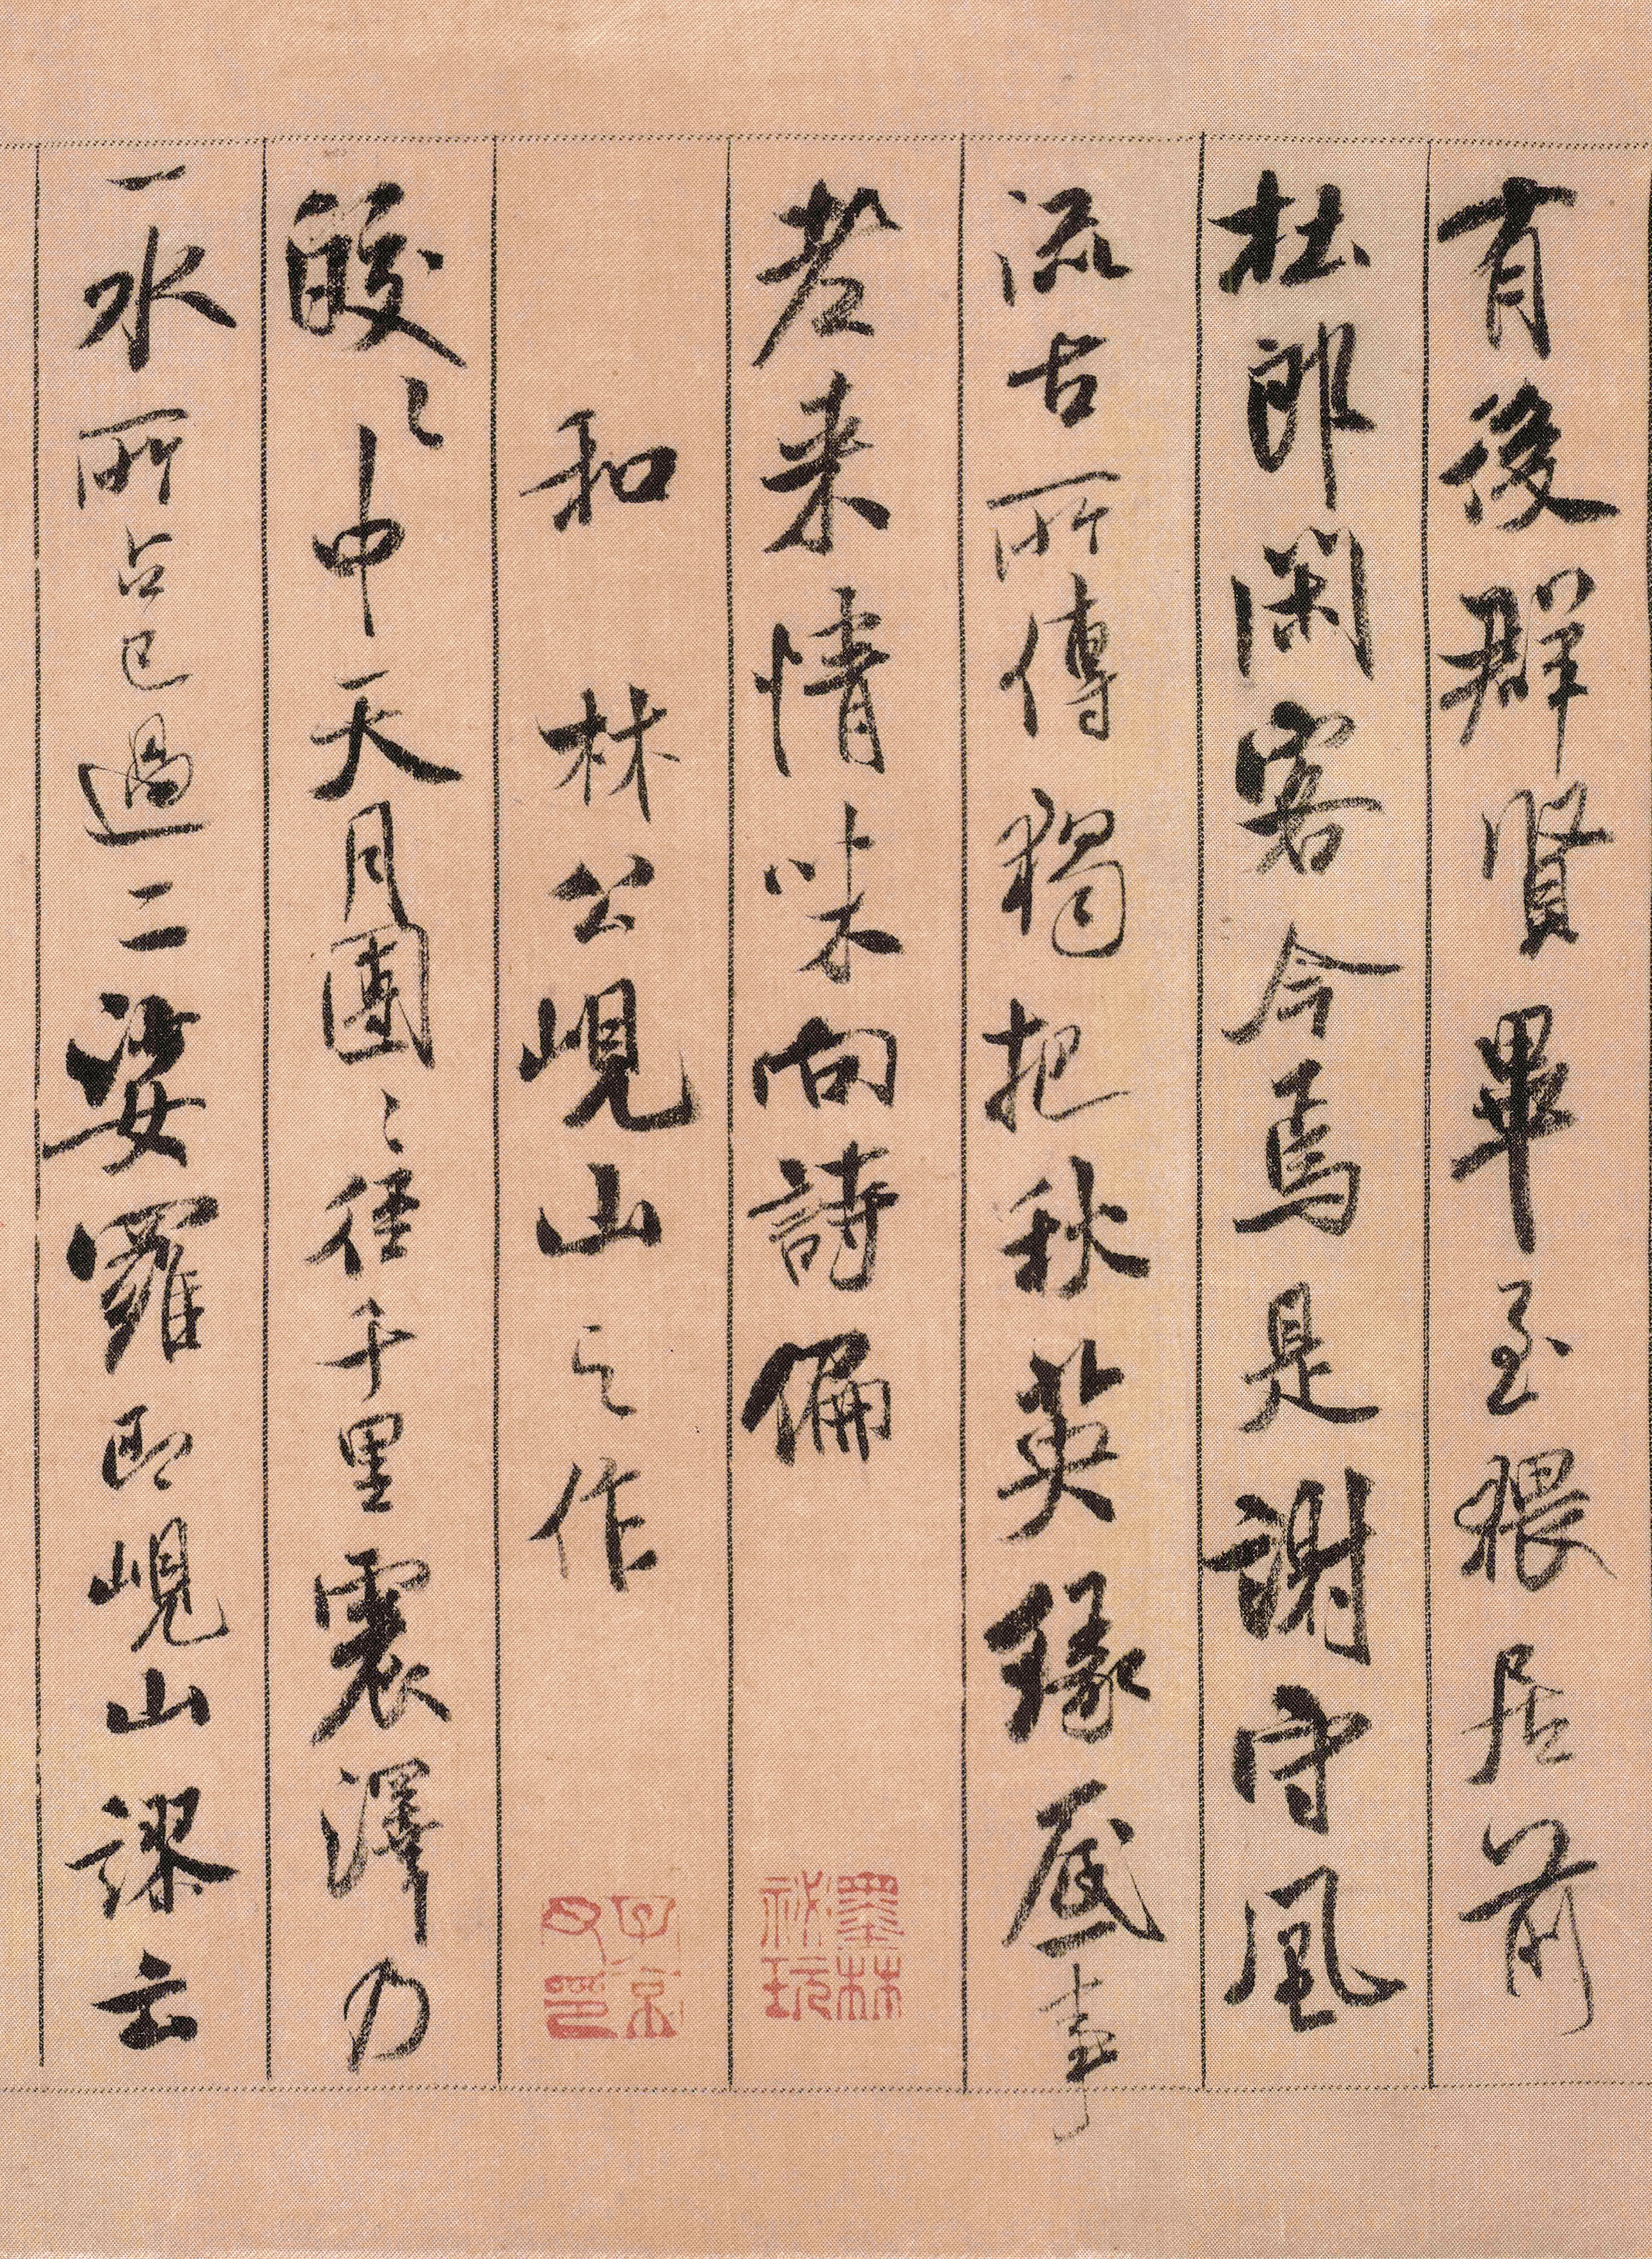 有後群賢畢至猥居前
杜郎閑客今焉是謝守風
流古所傳獨把秋英緣底事
老来情味向詩偏
和林公峴山之作
皎〻中天月團〻徑千里震澤乃
一水所占已過二娑羅即峴山謬云
墨林
祕玩